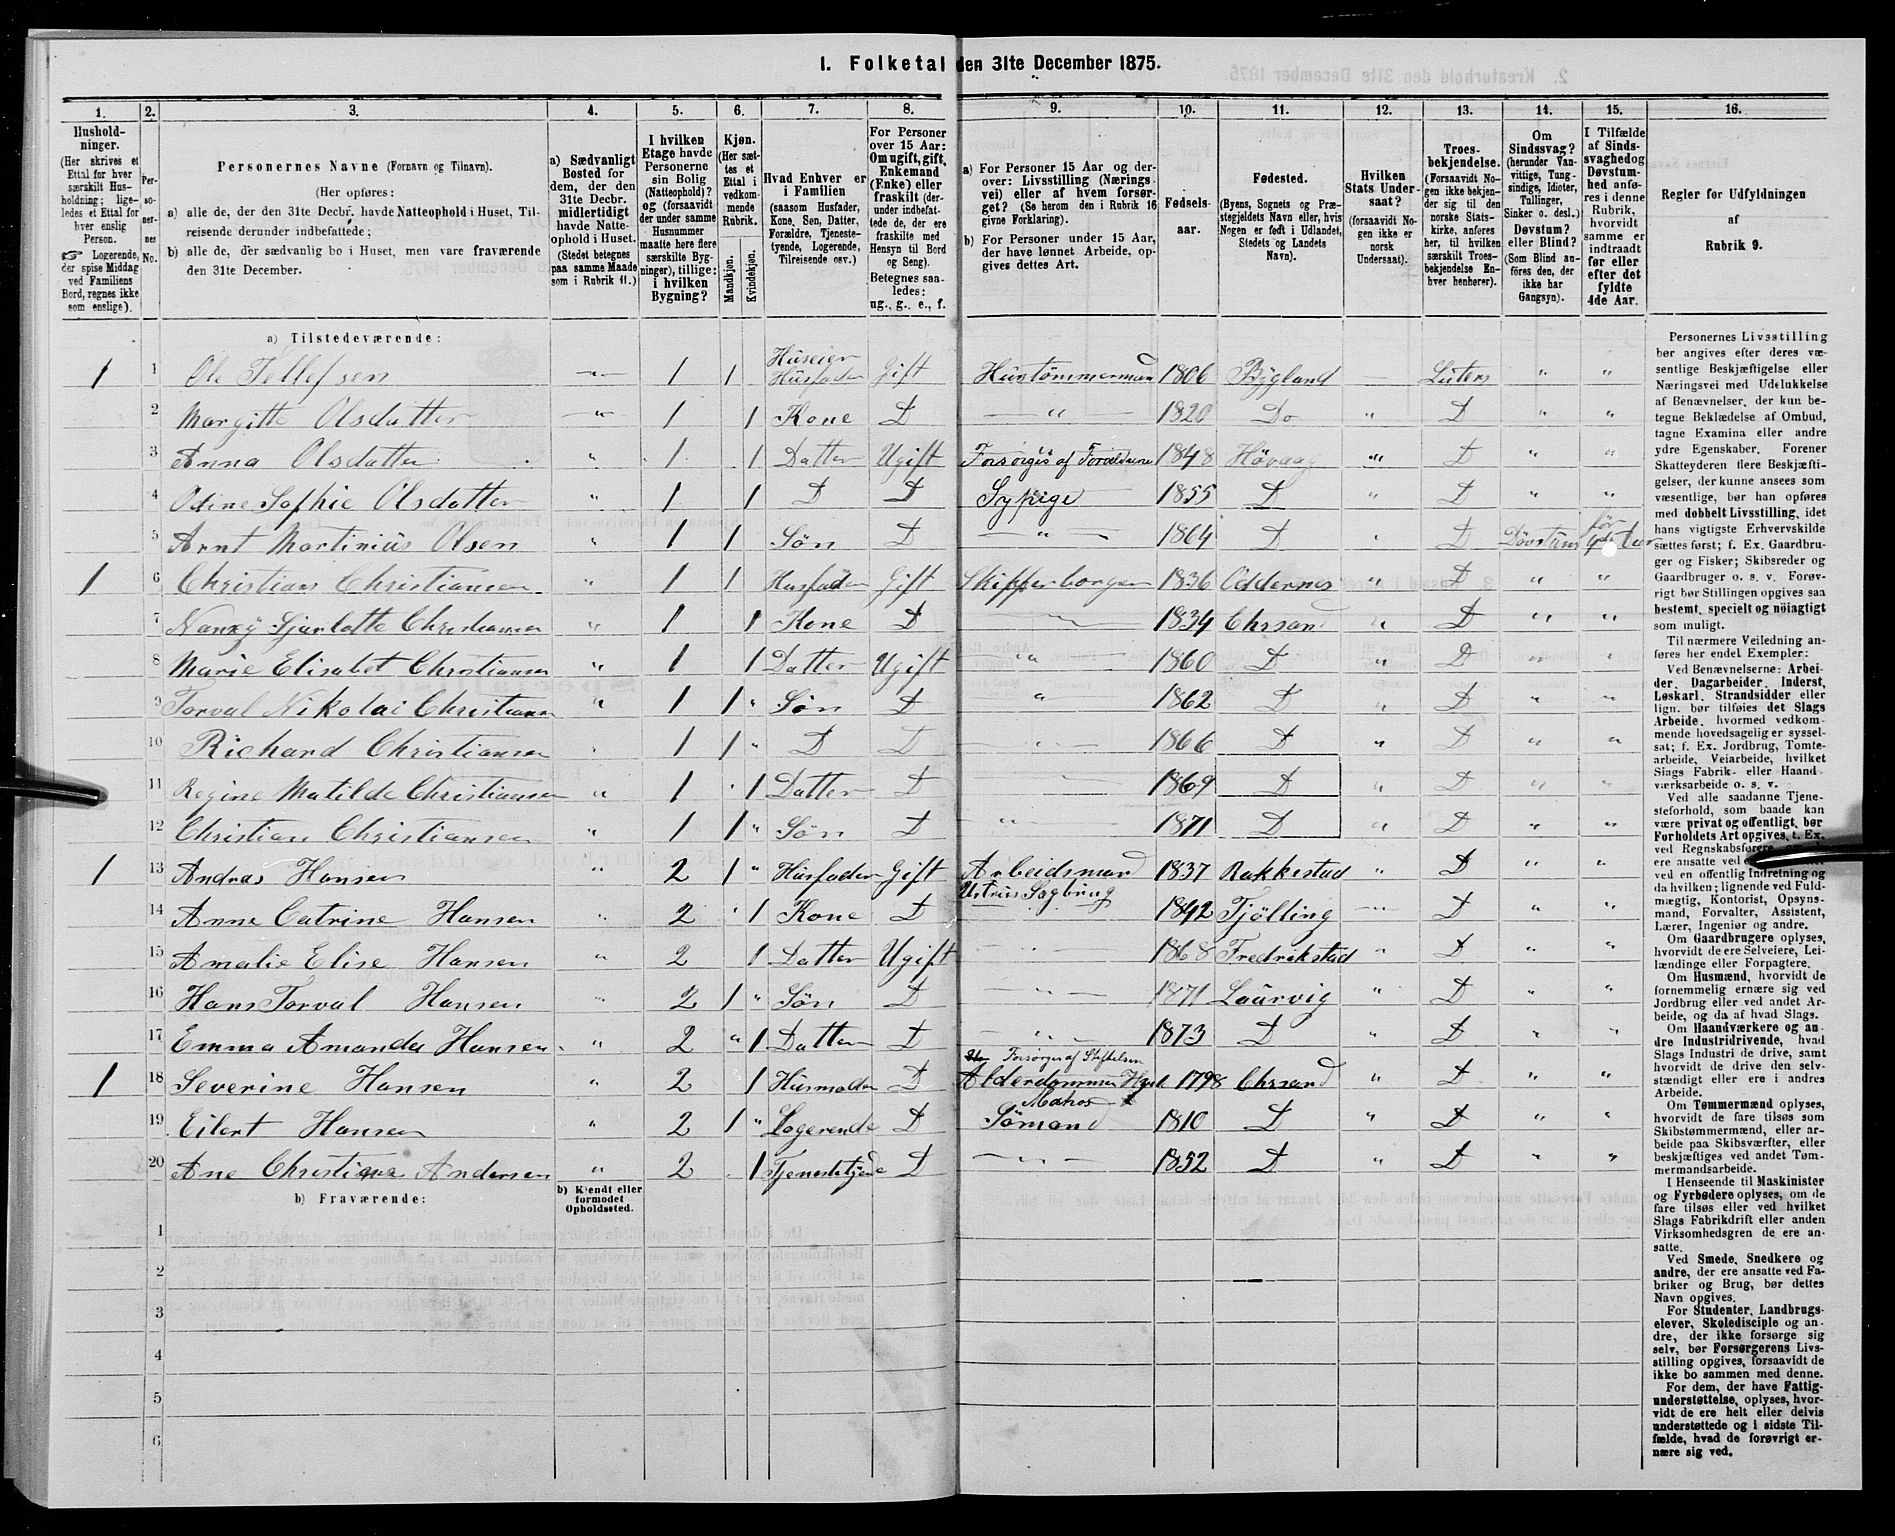 1. Folketal den 31te December 1875.
1. 2. 3. 4. 5. 6. 7. 8. 9. 10. 11. 12. 13. 14. 15. 16.
Hushold-
ninger.
(Her skrives et
Ettal for hver
særskilt Hus-
holdning; lige-
ledes et Ettal for
hver enslig
Person.
☞ Logerende,
der spise Middag
ved Familiens
Bord, regnes ikke
som enslige).
Per-
so-
ner-
nes
No.
Personernes Navne (Fornavn og Tilnavn).
(Her opføres:
a) alle de, der den 31te Decbr. havde Natteophold i Huset, Til-
reisende derunder indbefattede;
b) alle de, der sædvanlig bo i Huset, men vare fraværende
den 31te December.
a) Sædvanligt
Bosted for
dem, der den
31te Decbr.
midlertidigt
havde Natte-
ophold i Huset.
(Stedet betegnes
paa samme Maade
som i Rubrik 11.)
I hvilken
Etage havde
Personerne
sin Bolig
(Natteophold)?
og (forsaavidt
der under samme
Husnummer
maatte høre flere
særskilte Byg-
ninger), tillige:
i hvilken
Bygning?
Kjøn.
(Her sæt-
tes et
Ettal i
vedkom-
mende
Rubrik.
Mandkjøn.
Kvindekjøn.
Hvad Enhver er
i Familien
(saasom Husfader,
Kone, Søn, Datter,
Forældre, Tjeneste-
tyende, Logerende,
Tilreisende osv.)
For Personer
over 15 Aar:
Om ugift, gift,
Enkemand
(Enke) eller
fraskilt (der-
under indbefat-
tede de, der ere
fraskilte med
Hensyn til Bord
og Seng).
Betegnes saa-
ledes:
ug., g., e., f.
a) For Personer 15 Aar og der-
over: Livsstilling (Nærings-
vei) eller af hvem forsør-
get? (Se herom den i Rubrik 16
givne Forklaring).
b) For Personer under 15 Aar,
der have lønnet Arbeide, op-
gives dettes Art.
Fødsels-
aar.
Fødested.
(Byens, Sognets og Præ-
stegjeldets Navn eller, hvis
Nogen er født i Udlandet,
Stedets og Landets
Navn).
Hvilken
Stats Under-
saat?
(forsaavidt No-
gen ikke er
norsk
Undersaat).
Troes-
bekjendelse.
(Forsaavidt No-
gen ikke bekjen-
der sig til den
norske Stats-
kirke, anføres
her, til hvilken
særskilt Troes-
bekjendelse En-
hver henhører).
Om
Sindssvag?
(herunder Van-
vittige, Tung-
sindige, Idioter,
Tullinger,
Sinker o. desl.)
Døvstum?
eller Blind?
(Som Blind an-
føres den, der
ikke har
Gangsyn).
I Tilfælde
af Sinds-
svaghed og
Døvstum-
hed anfø-
res i denne
Rubrik,
hvorvidt
samme er
indtraadt
før eller
efter det
fyldte
4de Aar.
Regler for Udfyldningen
af
Rubrik 9.
a) Tilstedeværende:
1 1 Ole Tellefsen " 1 1 Huseier Husfader Gift Hustømmermand 1806 Bygland Luters " "
2 Margitte Olsdatter " 1 1 Kone D " 1820 Do " D " "
3 Anna Olsdatter " 1 1 Datter Ugift Forsørges af Forældrene 1848 Høvaag " D " "
4 Odine Sophie Olsdatter " 1 1 D D Sypige 1855 D " D " "
5 Arnt Martinius Olsen " 1 1 Søn D " 1864 D " D Døvstum før 4de Aar
1 6 Christian Christiansen " 1 1 Husfader Gift Skipperborger 1836 Oddernes " D " "
7 Nanzy Sjarlotte Christiansen " 1 1 Kone D " 1834 Chrsand " D " "
8 Marie Elisabet Christiansen " 1 1 Datter Ugift " 1860 D " D " "
9 Torval Nikolai Christiansen " 1 1 " Søn D " 1862 D " D " "
10 Richard Christiansen " 1 1 " D D " 1866 D " D " "
11 Regine Matilde Christiansen " 1 " 1 Datter D " 1869 D " D " "
12 Christian Christiansen " 1 1 " Søn D " 1871 D " D " "
1 13 Andras Hansen " 2 1 " Husfader Gift Arbeidsmand 1837 Rakkestad " D " "
14 Anne Catrine Hansen " 2 " 1 Kone D Sagbrug 1842 Tjølling " D " "
15 Amalie Elise Hansen " 2 1 Datter Ugift " 1868 Fredrikstad " D " "
16 Hans Torval Hansen " 2 1 " Søn D " 1871 Laurvig " D " "
17 Emma Amanda Hansen " 2 " 1 Datter D " 1873 D " D " "
1 18 Severine Hansen " 2 1 Husmoder D Forsørges af Stiftelsen Alderdommen 1798 Chrsand " D " "
19 Eilert Hansen " 2 1 " Logerende D Sømand 1810 D " D " "
20 Ane Christiane Andersen " 2 1 Tjenestetyende D " 1852 D " D " "
b) Fraværende:
b) Kjendt eller
formodet
Opholdssted.
1
2
3
4
5
6
Personernes Livsstilling
bør angives efter deres væ-
sentlige Beskjæftigelse eller
Næringsvei med Udelukkelse
af Benævnelser, der kun be-
tegne Beklædelse af Ombud,
tagne Examina eller andre
ydre Egenskaber. Forener
Skatteyderen flere Beskjæfti-
gelser, der kunne ansees som
væsentlige, bør han opføres
med dobbelt Livsstilling, idet
hans vigtigste Erhvervskilde
sættes først; f. Ex. Gaardbru-
ger og Fisker; Skibsreder og
Gaardbruger o. s. v. Forøv-
rigt bør Stillingen opgives saa
bestemt, specielt og nøiagtigt
som muligt.
Til nærmere Veiledning an-
føres her endel Exempler:
Ved Benævnelserne: Arbei-
der, Dagarbeider, Inderst,
Løskarl, Strandsidder eller
lign. bør tilføies det Slags
Arbeide, hvormed vedkom-
mende hovedsagelig er syssel-
sat; f. Ex. Jordbrug, Tomte-
arbeide, Veiarbeide, hvilket
Slags Fabrik- eller Haand-
værksarbeide o. s. v.
Ved alle saadanne Tjene-
steforhold, som baade kan
være privat og offentligt, bør
Forholdets Art opgives, t. Ex.
ved Regnskabsførere
ere ansatte ved
ved en offentlig Indretning og
da hvilken; lignende ved Fuld-
mægtig, Kontorist, Opsyns-
mand, Forvalter, Assistent,
Lærer, Ingeniør og andre.
Om Gaardbrugere oplyses,
hvorvidt de ere Selveiere, Lei-
lændinge eller Forpagtere.
Om Husmænd, hvorvidt de
fornemmelig ernære sig ved
Jordbrug eller ved andet Ar-
beide, og da af hvad Slags.
Om Haandværkere og an-
dre Industridrivende, hvad
Slags Industri de drive, samt
hvorvidt de drive den selv-
stændigt eller ere i andres
Arbeide.
Om Tømmermænd oplyses,
hvorvidt de fare tilsøs som
Skibstømmermænd, eller ar-
beide paa Skibsværfter, eller
beskjæftiges ved andet Tøm-
mermandsarbeide.
I Henseende til Maskinister
og Fyrbødere oplyses, om de
fare tilsøs eller ved hvilket
Slags Fabrikdrift eller anden
Virksomhedsgren de ere an-
satte.
Ved Smede, Snedkere og
andre, der ere ansatte ved Fa-
briker og Brug, bør dettes
Navn opgives.
For Studenter, Landbrugs-
elever, Skoledisciple og an-
dre, der ikke forsørge sig
selv, bør Forsørgerens Livs-
stilling opgives, forsaavidt de
ikke bo sammen med denne.
For dem, der have Fattig-
understøttelse, oplyses, hvor-
vidt de ere helt eller delvis
understøttede og i sidste Til-
fælde, hvad de forøvrigt er-
nære sig ved.